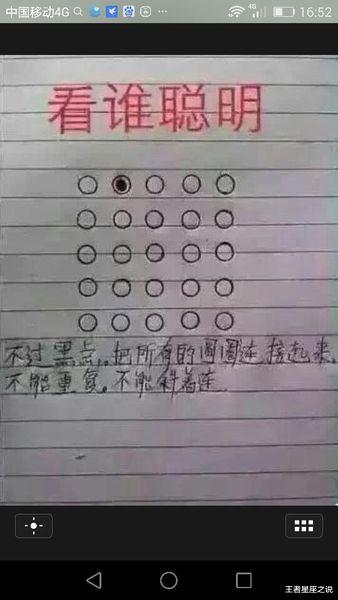 中国移动4G
4G
16:52
看谁聪明
不过黑点,把所有的圆圈连接起来,
不能重复,不能斜着连
王者星座之说